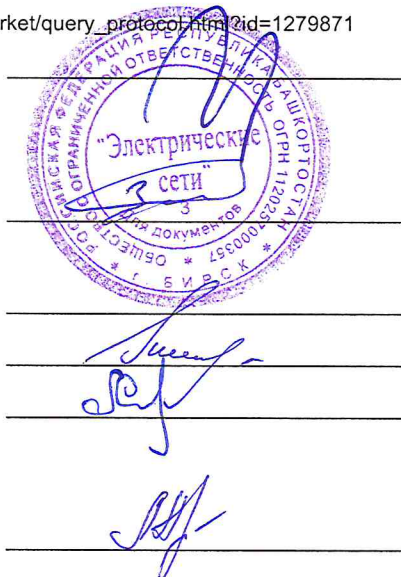 rket/query_protocol.html?id=1279871
РОССИЙСКАЯ ФЕДЕРАЦИЯ РЕСПУБЛИКА БАШКОРТОСТАН
ОБЩЕСТВО С ОГРАНИЧЕННОЙ ОТВЕТСТВЕННОСТЬЮ ОГРН 1120257000357
"Электрические
сети"
3
для документов
* г. БИРСК *